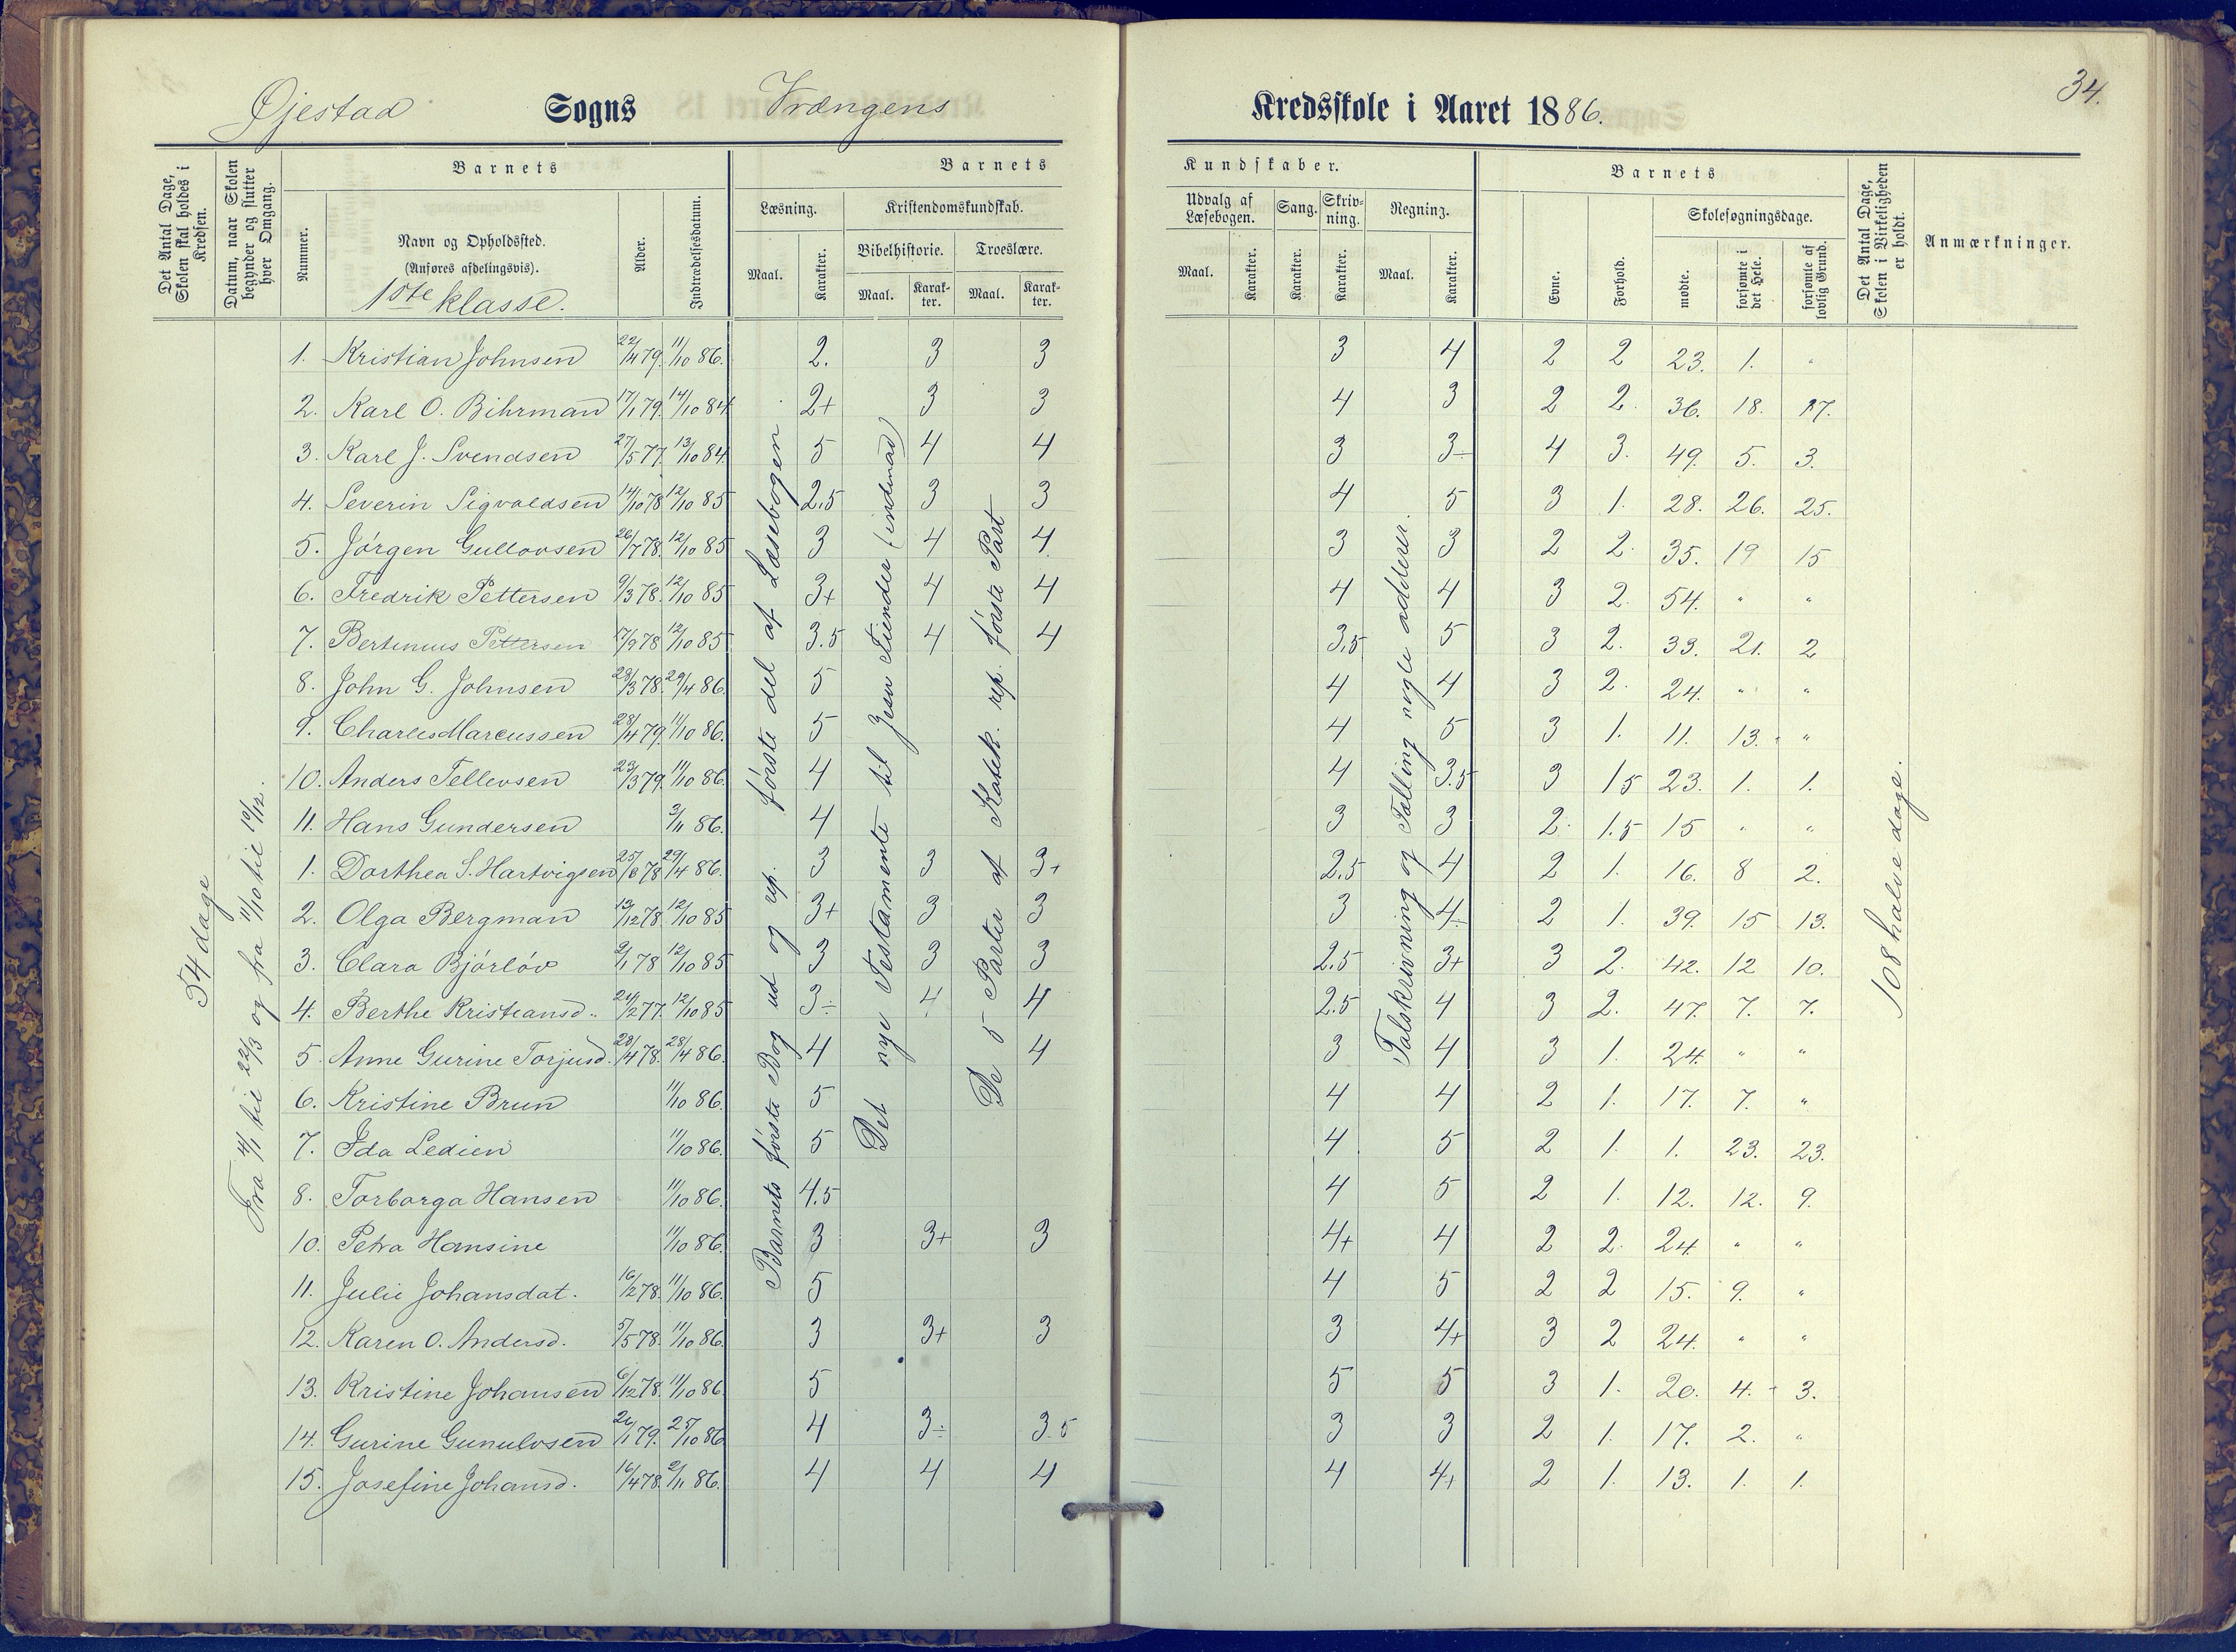 34.
Øjestad Sogns Vrængens Kredsskole i Aaret 1886.
Det Antal Dage, Skolen skal holdes i Kredsen.
Datum, naar Skolen begynder og slutter hver Omgang.
Barnets
Nummer.
Navn og Opholdssted.
(Anføres afdelingsvis).
1ste klasse.
Alder.
Indtrædelsesdatum.
Barnets Kundskaber.
Læsning.
Maal.
Karakter.
Kristendomskundskab.
Bibelhistorie.
Maal.
Karakter.
Troeslære.
Maal.
Karakter.
Udvalg af Læsebogen.
Maal.
Karakter.
Sang.
Karakter.
Skrivning.
Karakter.
Regning.
Maal.
Karakter.
Barnets
Evne.
Forhold.
Skolesøgningsdage.
mødte.
forsømte i det Hele.
forsømte af lovlig Grund.
Det Antal Dage, Skolen i Virkeligheden er holdt.
Anmærkninger.
54 dage
Fra 4/1 til 22/3 og fra 11/10 til 10/12.
Barnets første Bog ud og rep. første del af Læsebogen
Det nye Testamente til Jesu Fiender (indenad)
De 5 Parter af Katek. rep. første Part
Talskrivning og Tælling nogle adderer.
108 halve dage.
1. Kristian Johnsen 22/4 79. 11/10 86. 2. 3 3 3 4 2 2 23. 1. "
2. Karl O. Bihrman 17/1 79. 14/10 84 2+ 3 3 4 3 2 2. 36. 18. 17.
3. Karl J. Svendsen 27/5 77. 13/10 84. 5 4 4 3 3÷ 4 3. 49. 5. 3.
4. Severin Sigvaldsen 14/10 78 12/10 85 2,5 3 3 4 5 3 1. 28. 26. 25.
5. Jørgen Gullovsen 26/7 78. 12/10 85 3 4 4 3 3 2 2. 35. 19 15
6. Fredrik Pettersen 9/3 78. 12/10 85 3+ 4 4 4 4 3 2. 54. " "
7. Bertinius Pettersen 17/9 78 12/10 85 3.5 4 4 3,5 5 3 2. 33. 21. 2
8. John G. Johnsen 28/3 78. 29/4 86. 5 4 4 3 2. 24. " "
9. Charles Marcussen 28/4 79. 11/10 86. 5 4 5 3 1. 11. 13. "
10. Anders Tellevsen 23/3 79. 11/10 86. 4 4 3.5 3 1 5 23. 1. 1.
11. Hans Gundersen 3/11 86. 4 3 3 2. 1.5 15 " "
1. Dorthea S. Hartvigsen 25/8 78 29/4 86. 3 3 3+ 2,5 4 2 1. 16. 8 2.
2. Olga Bergman 13/12 78. 12/10 85 3+ 3 3 3 4÷ 2 1. 39. 15 13.
3. Clara Bjørløv 9/1 78 12/10 85 3 3 3 2.5 3+ 3 2. 42. 12 10.
4. Berthe Kristiansd.. 24/2 77. 12/10 85 3÷ 4 4 2.5 4 3 2. 47. 7. 7.
5. Anne Gurine Torjusd. 28/4 78. 28/4 86. 4 4 3 4 3 1. 24. " "
6. Kristine Brun 11/10 86. 5 4 4 2 1. 17. 7. "
7. Ida Ledien 11/10 86. 5 4 5 2 1. 1. 23. 23.
8. Torborga Hansen 11/10 86. 4.5 4 5 2 1. 12. 12. 9.
10. Petra Hansine 11/10 86. 3 3+ 3 4+ 4 2 2. 24. " "
11. Julie Johansdat. 16/2 78. 11/10 86. 5 4 5 2 2 15. 9. "
12. Karen O. Andersd. 5/5 78. 11/10 86. 3 3+ 3 3 4+ 3 2 24. " "
13. Kristine Johansen 6/12 78. 11/10 86. 5 5 5 3 1. 20. 4. 3.
14. Gurine Gunulvsen 26/1 79. 25/10 86 4 3÷ 3.5 3 3 2 1. 17. 2. "
15. Josefine Johansd. 16/4 78. 2/11 86. 4 4 4 4 4+ 2 1. 13. 1. 1.